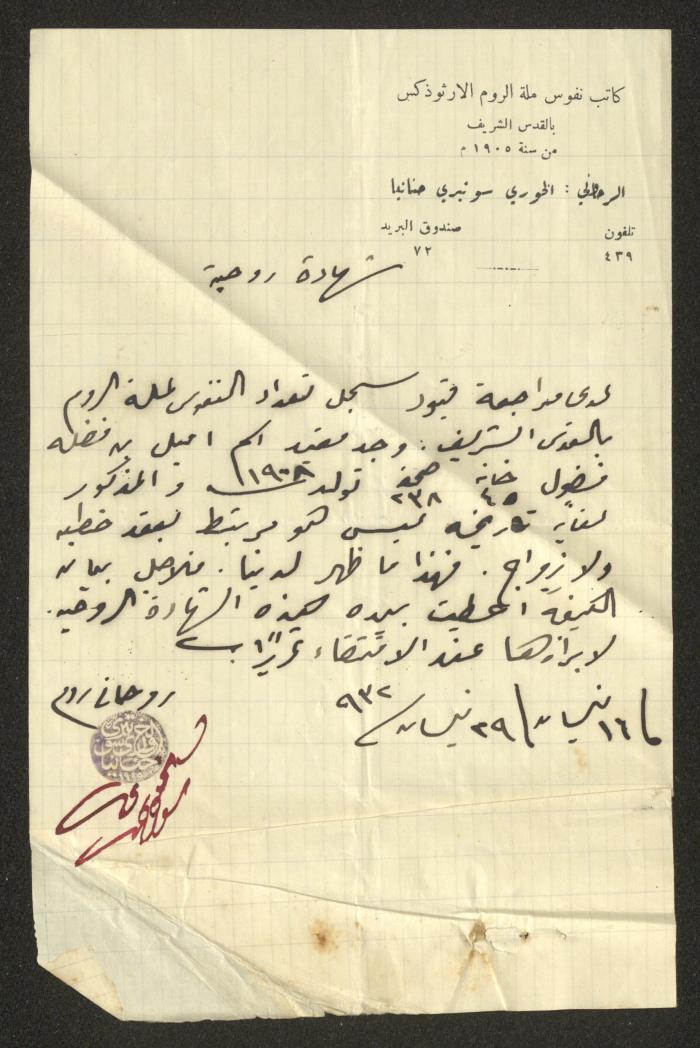 كاتب نفوس ملة الروم الارثوذكس
بالقدس الشريف
من سنة ١٩٠٥ م
الخوري سوتيري حنانيا
تلفون صندوق البريد
٤٣٩ ٧٢
شهادة روحية
لدى مراجعة قيود سجل تعداد النفوس لملة الروم
بالقدس الشريف. وجد مقيد اسم اميل بن فضله
فضول خانه ٤٥ صحيفه ٢٣٨ تولد ١٩٠٨ والمذكور
لغاية تاريخه ليس هو مرتبط بعقد خطبه
ولا زواج. فهذا ما ظهر لدينا. فلاجل بيان
الكيفية اعطيت بيده هذه الشهادة الروحيه.
لابرازها عند الاقتضاء تحريرًا بـ
١٦ نيسان ٢٩ نيسان ٩٣٢
روحاني روم